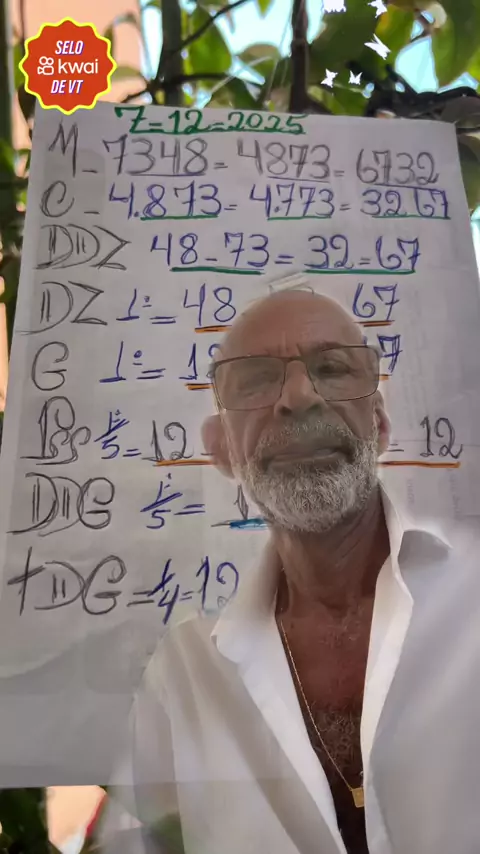 SELO
kwai
DE VT
7=12=2025
M - 7348 = 4873 = 6732
C - 4.873 = 4.773 = 3267
DDZ 48-73 = 32=67
DZ 1:= 48 67
G 1º= 1 7
Ps 1/5= 12 - = 12
DDG 1/5=
TDG = 1/4 = 12